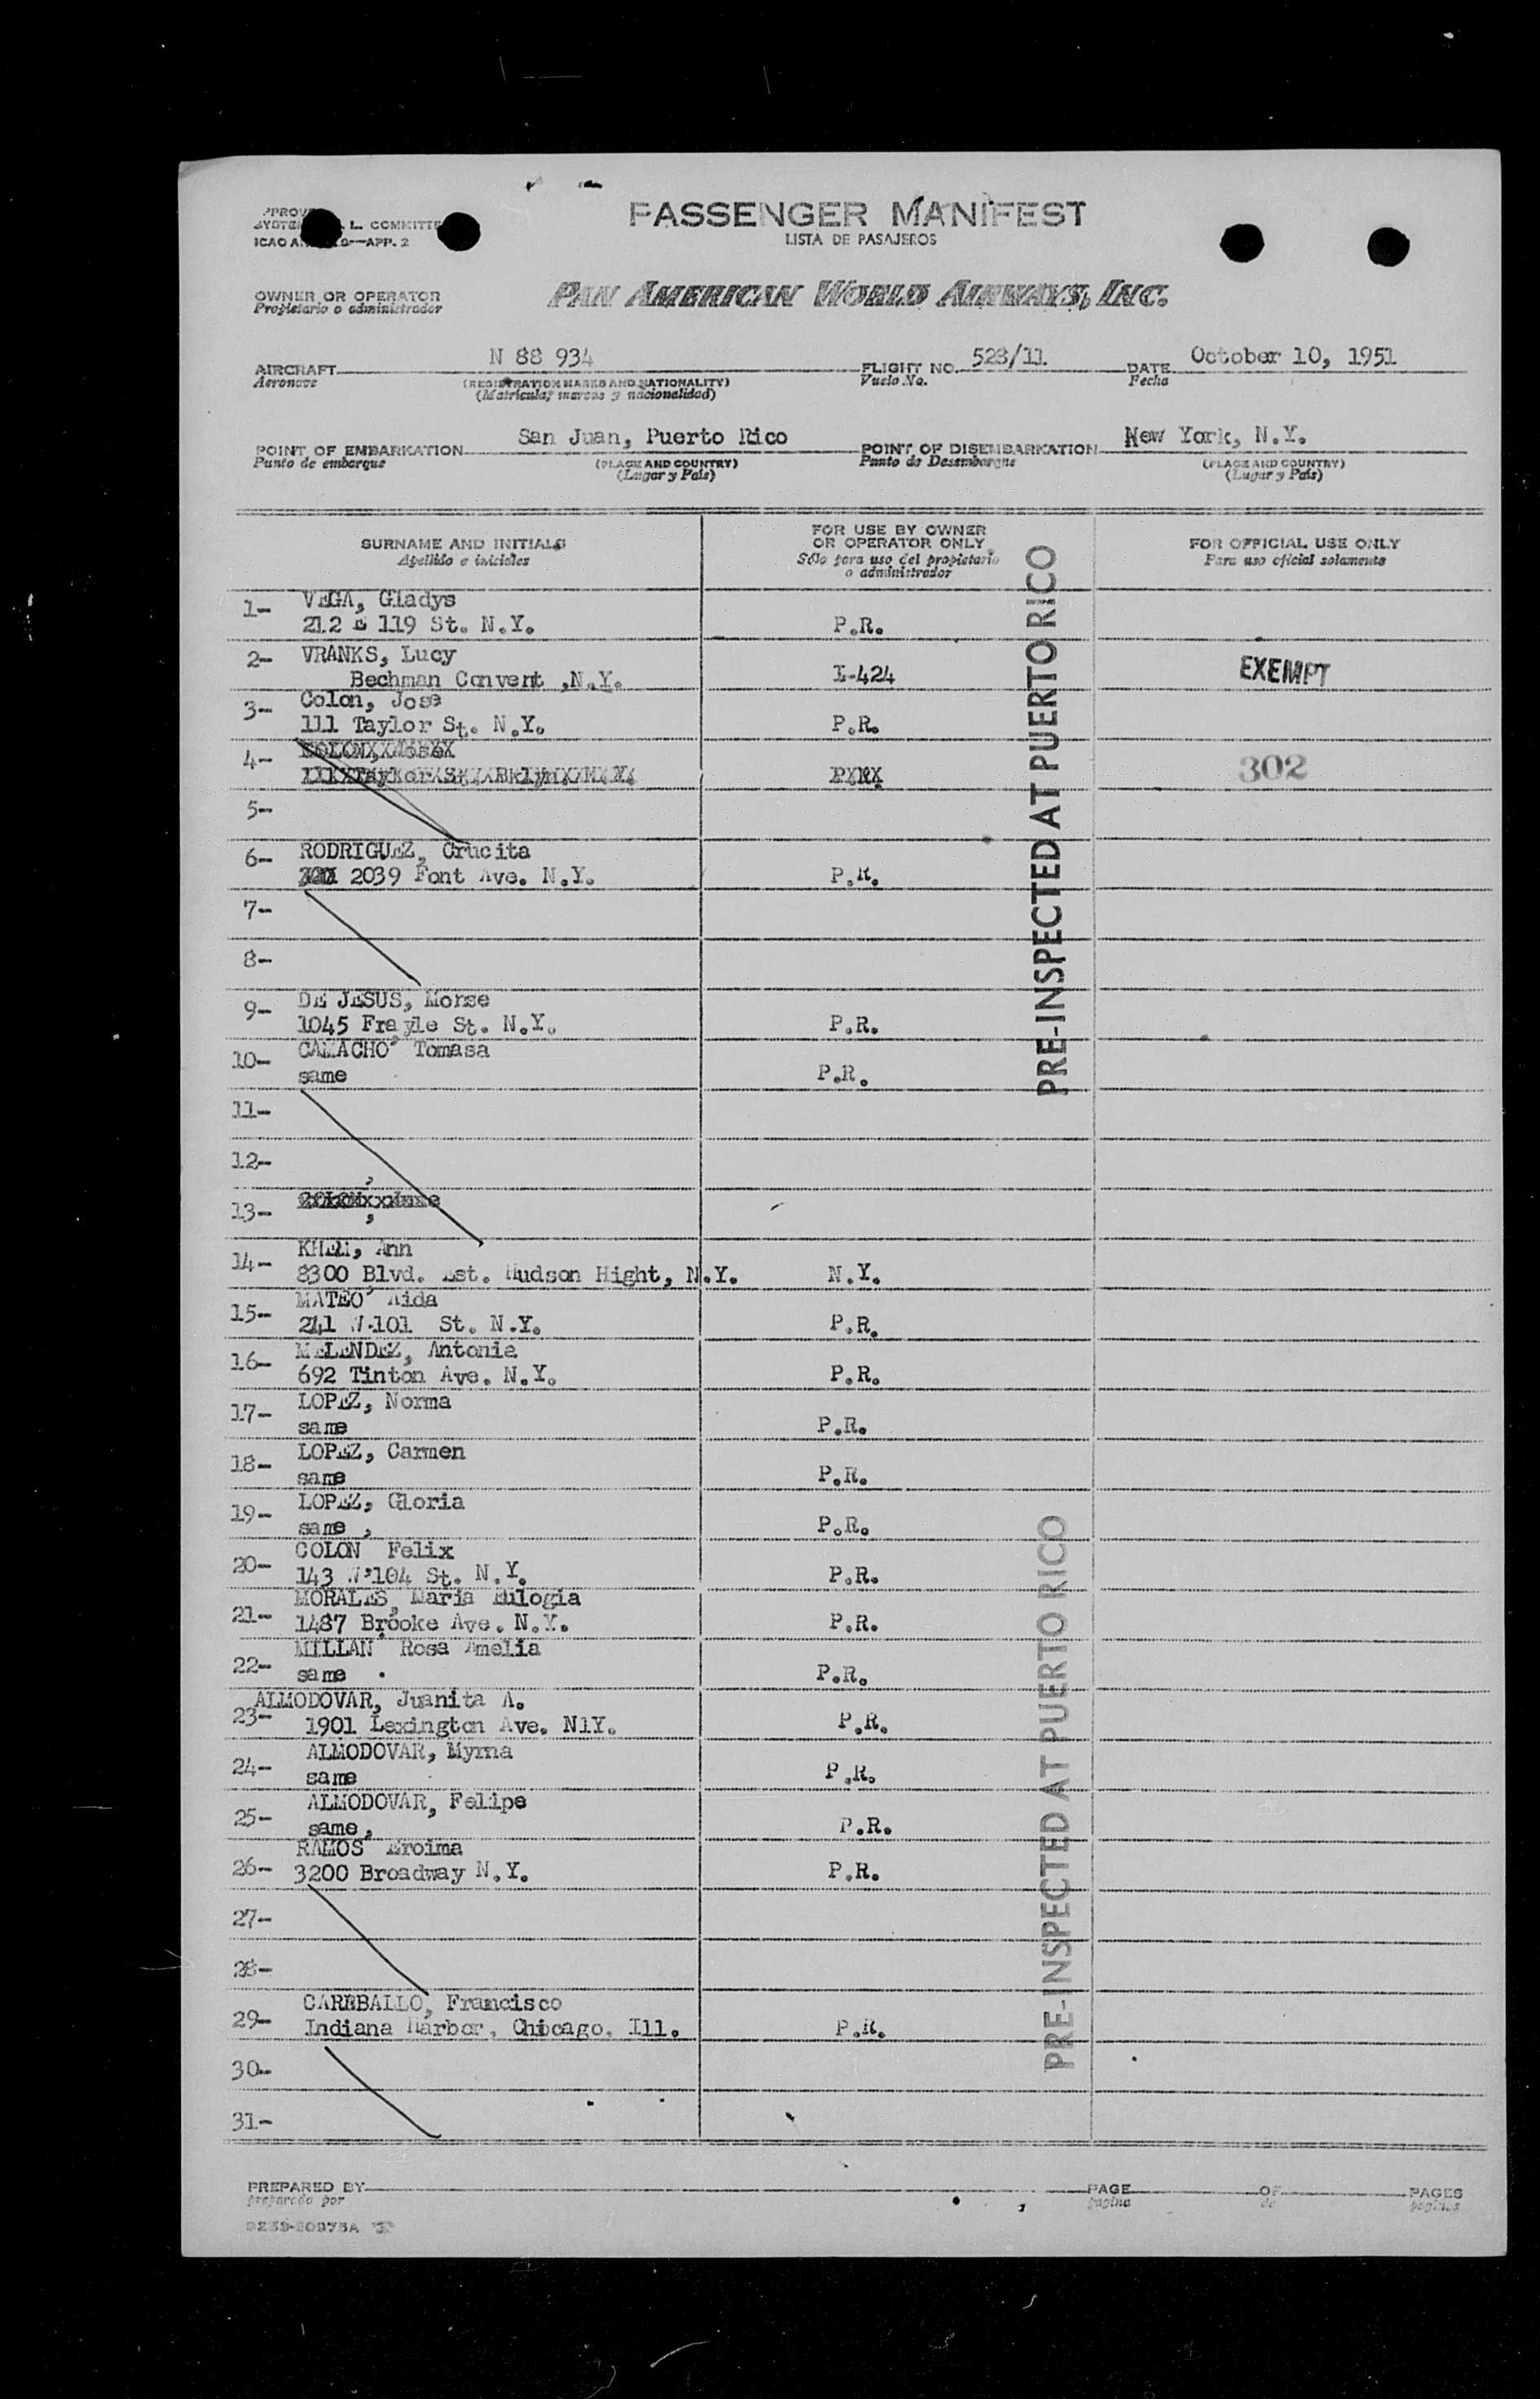 PASSENGER MANIFEST
LISTA DE PASAJEROS
L. COMMITTE
ICAO
APP. 2
OWNER OR OPERATOR
Propietario o administrador
PAN AMERICAN WORLD AIRWAYS, INC.
AIRCRAFT N 88 934 FLIGHT NO. 528/11 DATE October 10, 1951
Aeronave (REGISTRATION MARKS AND NATIONALITY) Vuelo No. Fecha
(Matrícula, marcas y nacionalidad)
POINT OF EMBARKATION San Juan, Puerto Rico POINT OF DISEMBARKATION New York, N.Y.
Punto de embarque (PLACE AND COUNTRY) Punto de Desembarque (PLACE AND COUNTRY)
(Lugar y País) (Lugar y País)
SURNAME AND INITIALS FOR USE BY OWNER OR OPERATOR ONLY FOR OFFICIAL USE ONLY
Apellido e iniciales Sólo para uso del propietario o administrador Para uso oficial solamente
1- VEGA, Gladys
212 E 119 St. N.Y. P.R.
2- VRANKS, Lucy
Bechman Convent ,N.Y. I-424 EXEMPT
3- Colon, Jose
111 Taylor St. N.Y. P.R.
4- 302
5-
6- RODRIGUEZ, Crucita
2039 Font Ave. N.Y. P.R.
7-
8-
9- DE JESUS, Morse
1045 Frayle St. N.Y. P.R.
10- CAMACHO, Tomasa
same P.R.
11-
12-
13-
14- Ann
8300 Blvd. Est. Hudson Hight, N.Y. N.Y.
15- MATEO, Aida
241 W.101 St. N.Y. P.R.
16- MELENDEZ, Antonia
692 Tinton Ave. N.Y. P.R.
17- LOPEZ, Norma
same P.R.
18- LOPEZ, Carmen
same P.R.
19- LOPEZ, Gloria
same , P.R.
20- COLON Felix
143 W 104 St. N.Y. P.R.
21- MORALES, Maria Eulogia
1487 Brooke Ave. N.Y. P.R.
22- MILLAN Rosa Amelia
same . P.R.
23- ALMODOVAR, Juanita A.
1901 Lexington Ave. N1Y. P.R.
24- ALMODOVAR, Myrna
same P.R.
25- ALMODOVAR, Felipe
same, P.R.
26- RAMOS Eroima
3200 Broadway N.Y. P.R.
27-
28-
29- CARBALLO, Francisco
Indiana Harbor, Chicago, Ill. P.R.
30-
31-
PRE-INSPECTED AT PUERTO RICO
PRE-INSPECTED AT PUERTO RICO
PREPARED BY PAGE OF PAGES
preparado por página de páginas